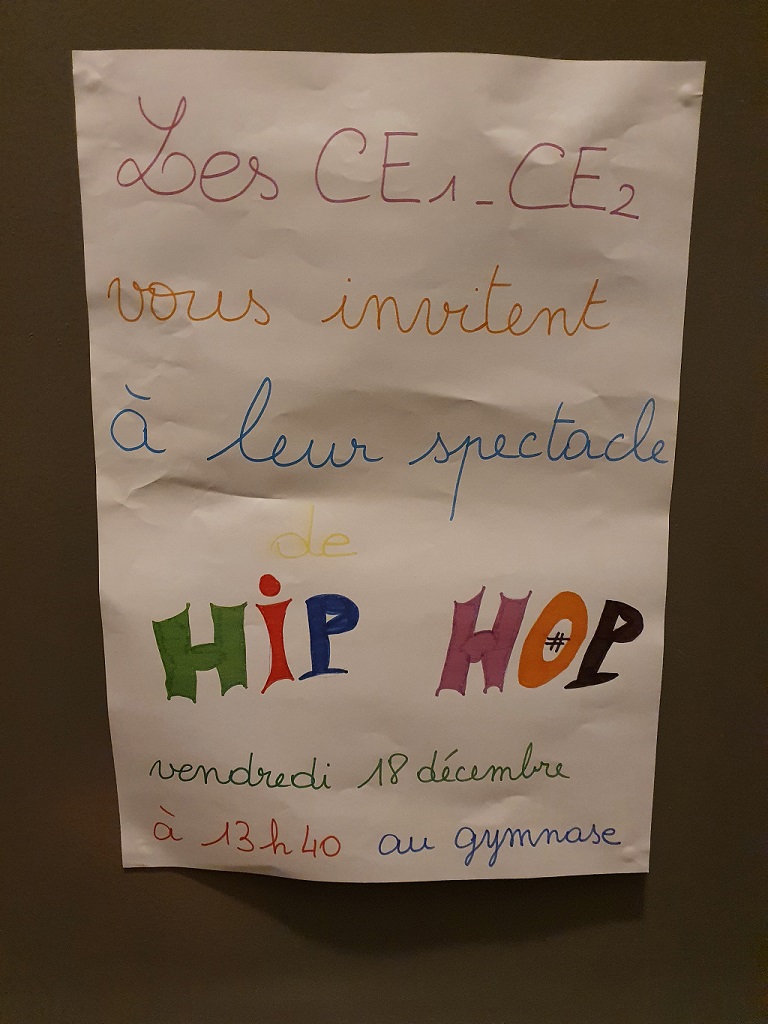 Les CE1-CE2
vous invitent
à leur spectacle
de
HiP HOP
#
vendredi 18 décembre
à 13h40 au gymnase